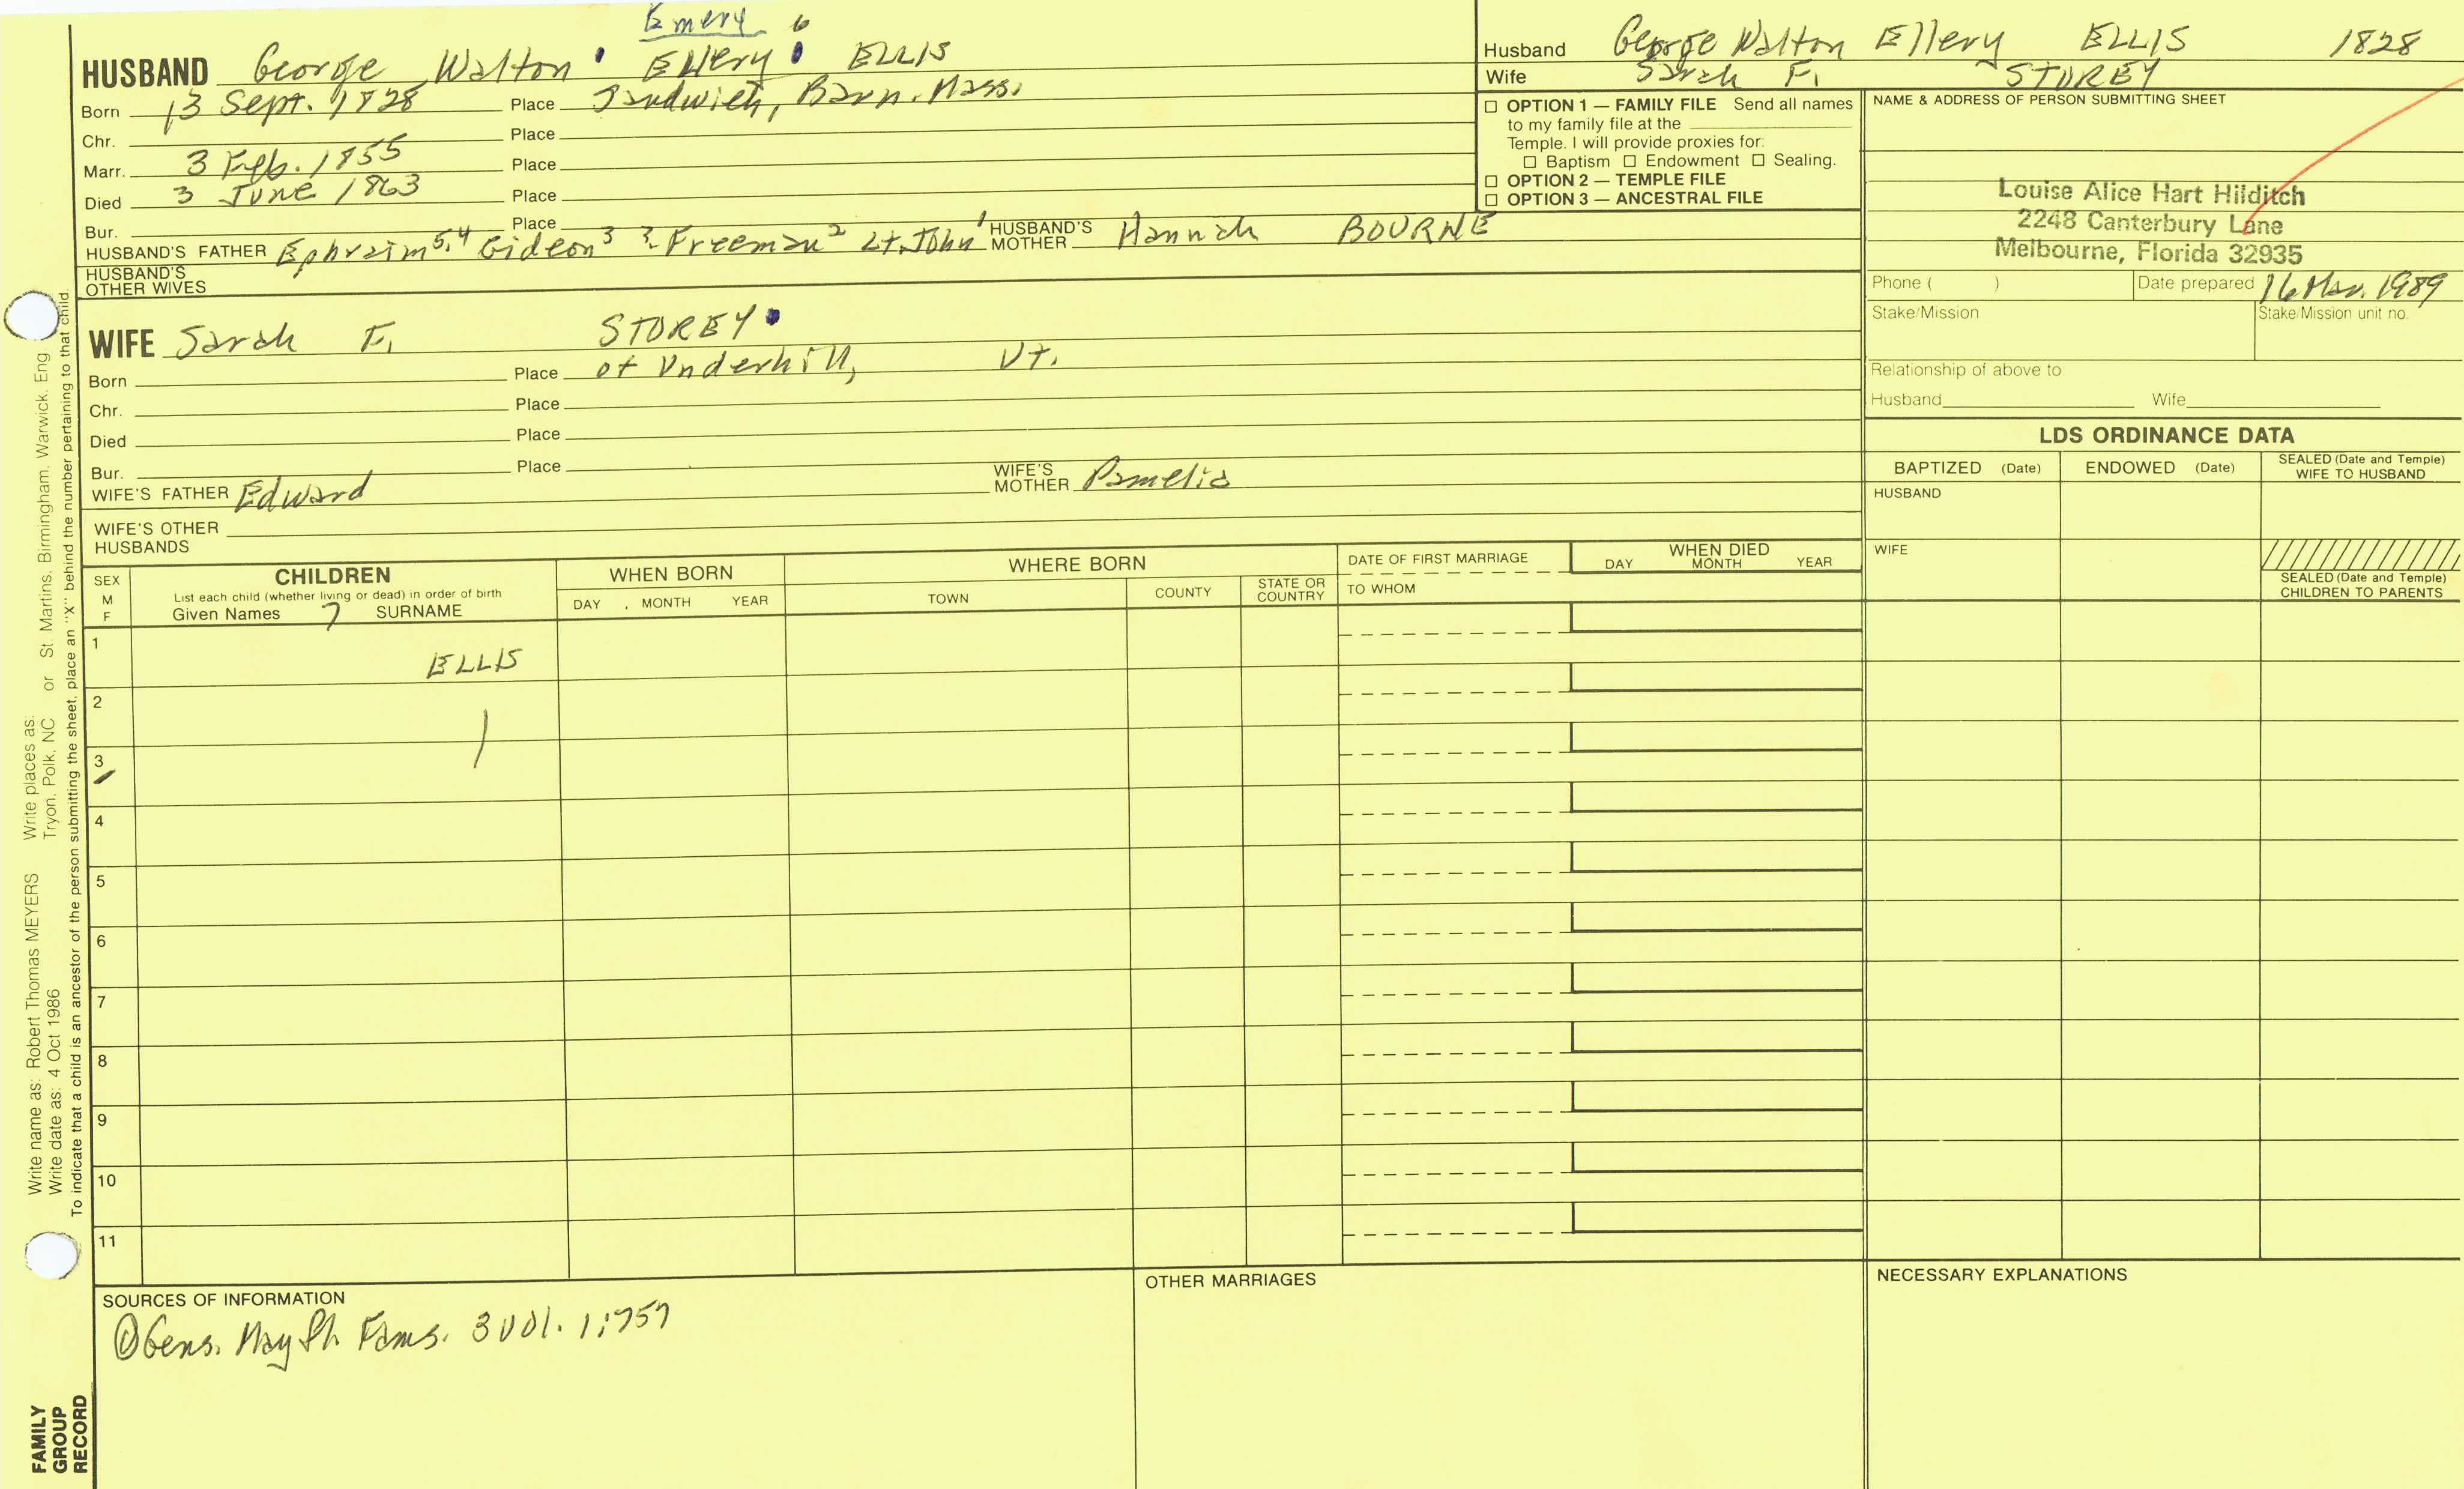 Emery 6
HUSBAND George Walton Ellery ELLIS
Born 13 Sept. 1828 Place Sandwich, Barn. Mass.
Chr. Place
Marr. 3 Feb. 1855 Place
Died 3 June 1863 Place
Bur. Place
HUSBAND'S FATHER Ephraim 5,4 Gideon 3 ?. Freeman 2 Lt. John 1 HUSBAND'S MOTHER Hannah BOURNE
HUSBAND'S OTHER WIVES
WIFE Sarah F. STOREY
Born Place of Underhill, Vt.
Chr. Place
Died Place
Bur. Place
WIFE'S FATHER Edward WIFE'S MOTHER Pamelia
WIFE'S OTHER HUSBANDS
Husband George Walton Ellery ELLIS 1828
Wife Sarah F. STOREY
☐ OPTION 1 — FAMILY FILE Send all names
to my family file at the
Temple. I will provide proxies for:
☐ Baptism ☐ Endowment ☐ Sealing.
☐ OPTION 2 — TEMPLE FILE
☐ OPTION 3 — ANCESTRAL FILE
NAME & ADDRESS OF PERSON SUBMITTING SHEET
Louise Alice Hart Hilditch
2248 Canterbury Lane
Melbourne, Florida 32935
Phone ( ) Date prepared 16 Mar. 1989
Stake/Mission Stake/Mission unit no.
Relationship of above to:
Husband Wife
LDS ORDINANCE DATA
BAPTIZED (Date) ENDOWED (Date) SEALED (Date and Temple) WIFE TO HUSBAND
HUSBAND
WIFE
SEALED (Date and Temple)
CHILDREN TO PARENTS
SEX M F
CHILDREN
List each child (whether living or dead) in order of birth
Given Names 7 SURNAME
WHEN BORN
DAY MONTH YEAR
WHERE BORN
TOWN COUNTY STATE OR COUNTRY
DATE OF FIRST MARRIAGE
TO WHOM
WHEN DIED
DAY MONTH YEAR
1 ELLIS
2
3
4
5
6
7
8
9
10
11
SOURCES OF INFORMATION
① Gens. May fh. Fams. 3 Vol. 1:757
OTHER MARRIAGES
NECESSARY EXPLANATIONS
Write name as: Robert Thomas MEYERS Write places as: St. Martins, Birmingham, Warwick, Eng.
Write date as: 4 Oct 1986 Tryon, Polk, NC or
To indicate that a child is an ancestor of the person submitting the sheet, place an "X" behind the number pertaining to that child.
FAMILY
GROUP
RECORD